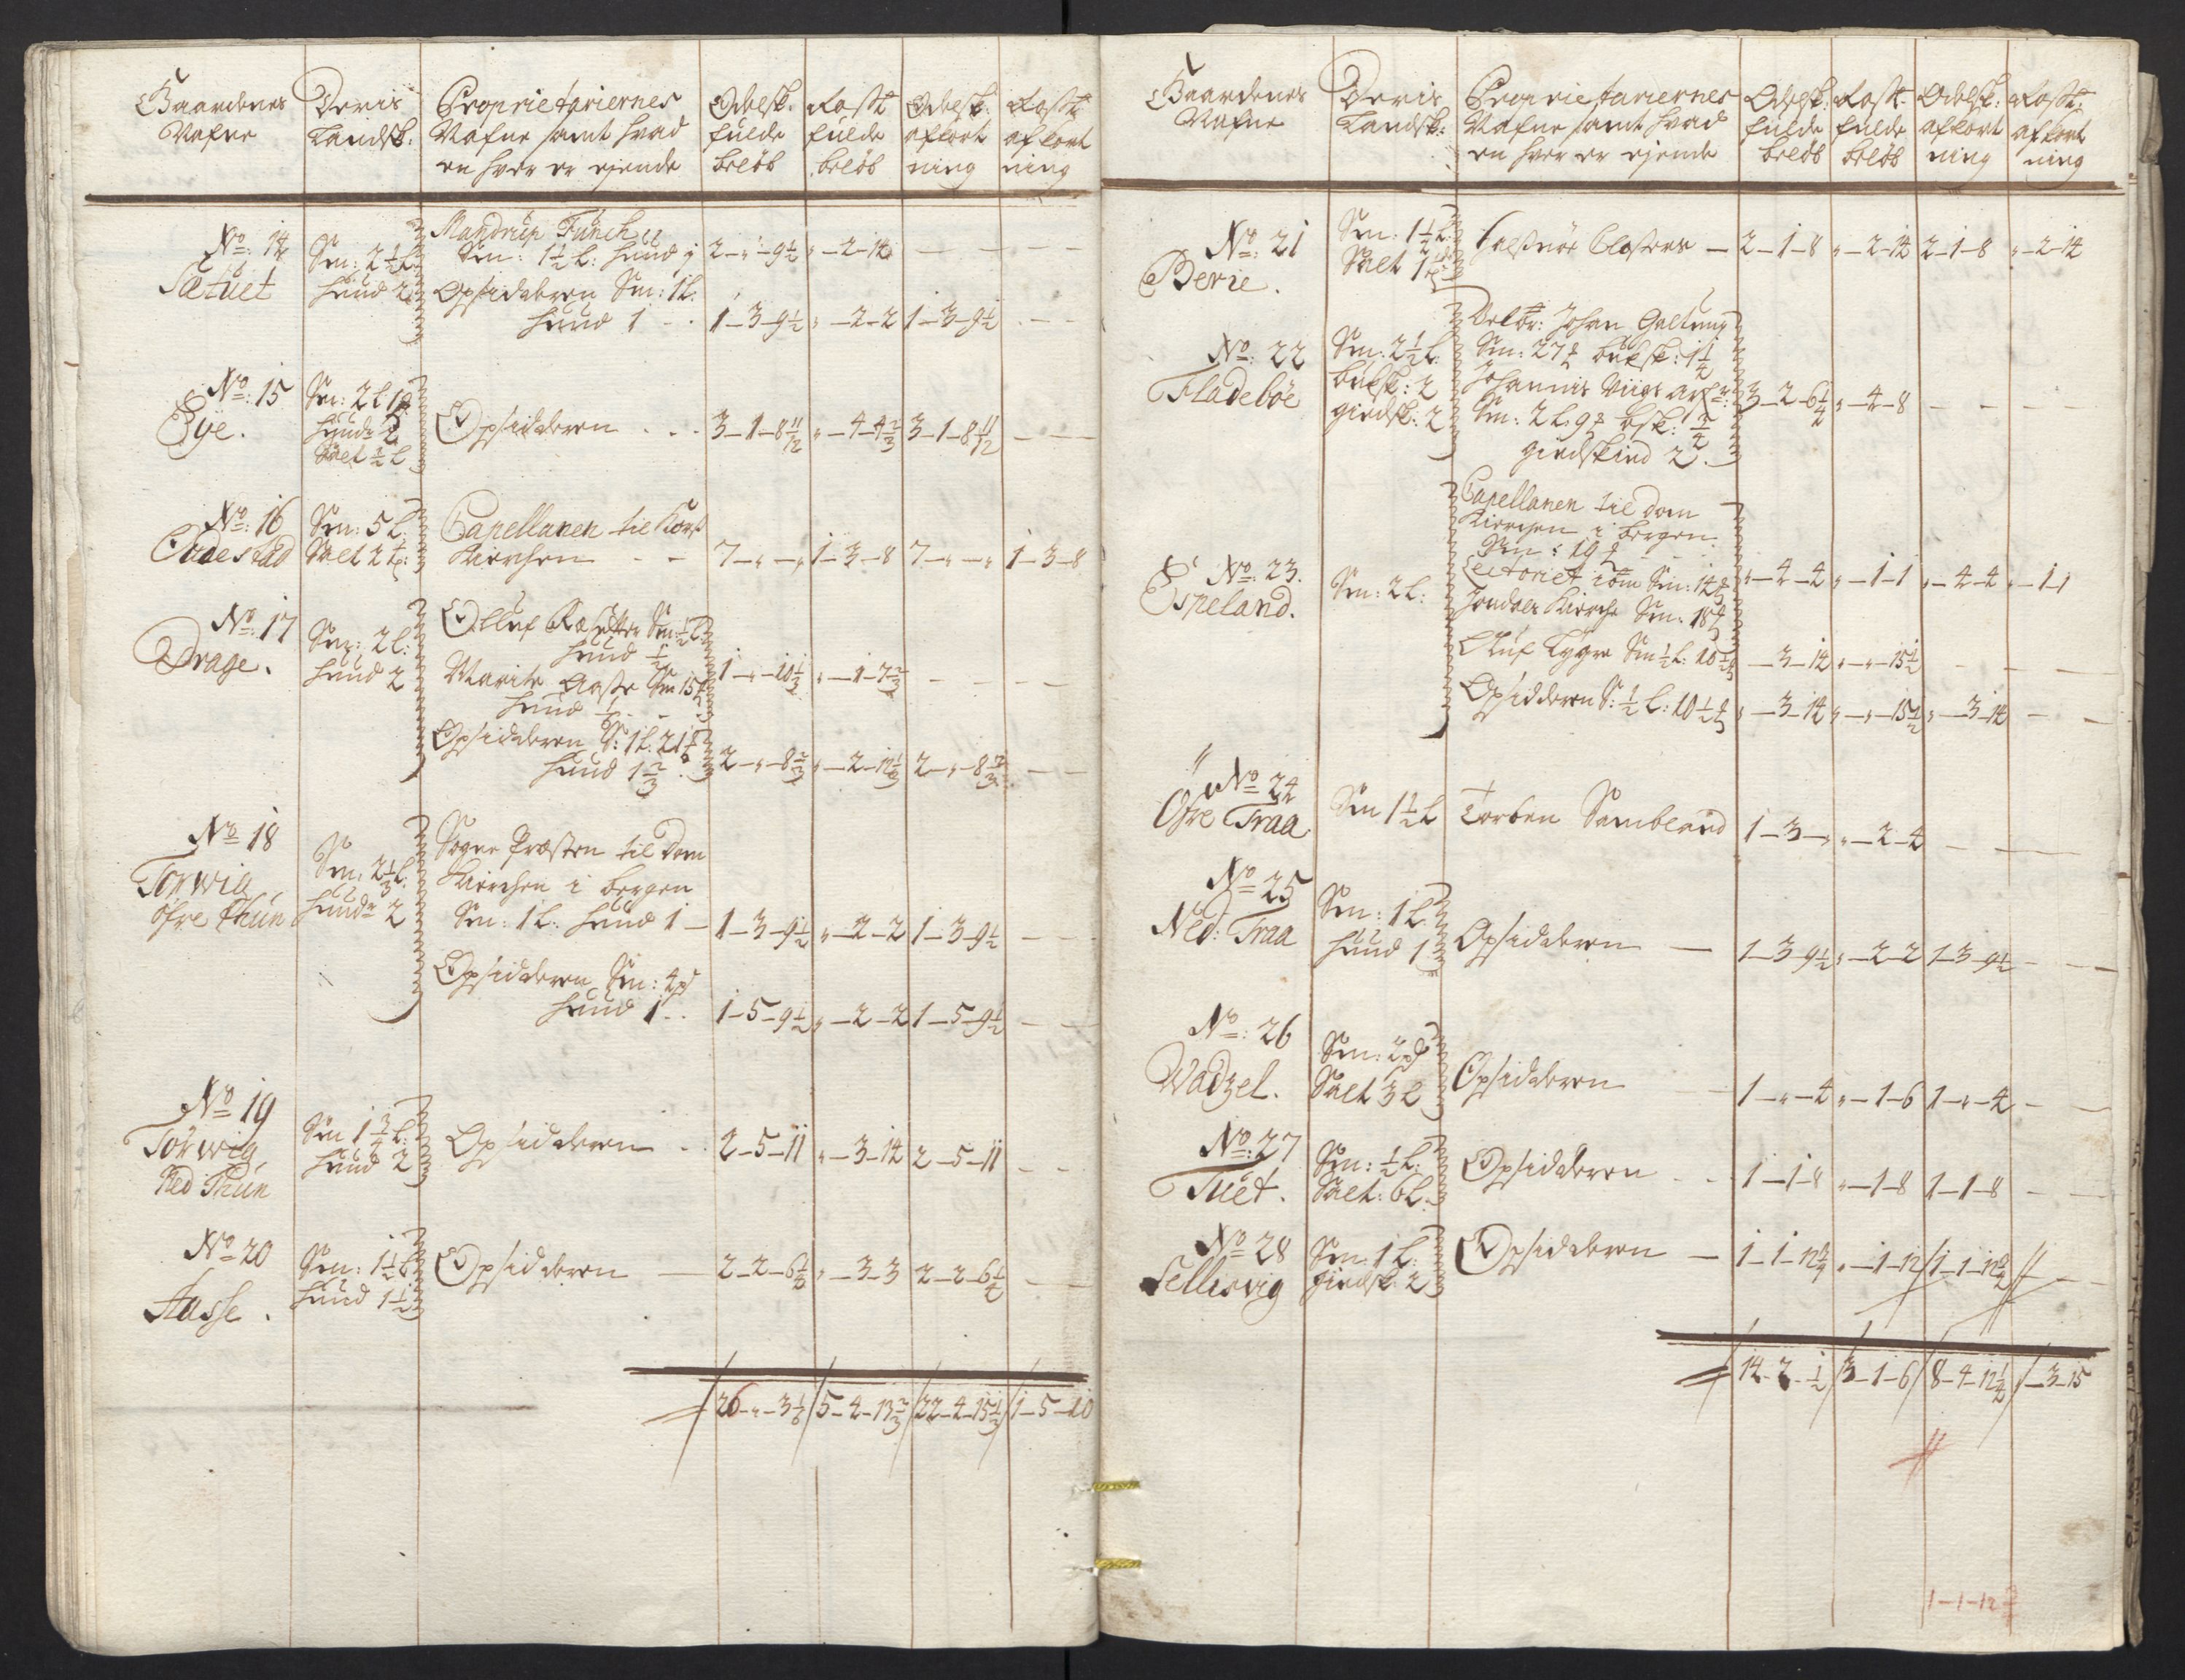 Gaardenes Nafne | Deris Landsk: | Proprietariernes Nafne samt hvad en hver er ejende | Odelsk: fulde beløb | Rostt: fulde beløb | Odelsk: afkortning | Rostt: afkortning
No: 14 Sætuet | Sm: 2½ l: huud 2 | Mandrup Tünch Sm: 1½ l: huud 1 | 2-"-9½ | "-2-14 | - | -
Opsidderen Sm: 1 l: huud 1 | 1-3-9½ | "-2-2 | 1-3-9½ | -
No: 15 Eye. | Sm: 2 l huude 2 Salt ½ l | Opsidderen | 3-1-8 11/12 | "-4-4⅔ | 3-1-8 11/12 | -
No: 16 | Sm: 5 l: Salt 2 | Capellanen til Kors Kierchen | 7-"-" | 1-3-8 | 7-"-" | 1-3-8
No: 17 Drage. | Sm: 2 l: huud 2 | Olluf Sm: ½ l huud
Marite Aasse Sm 15 huud | 1-"-10⅓ | "-1-7⅔ | - | -
Opsidderen S: 1 l. 21 huud 1⅔ | 2-"-8⅔ | "-2-12⅓ | 2-"-8⅔ | -
No 18 Torwig öfre thün | Sm: 2⅓ l: huude 2 | Sogne Præsten til Dom Kierchen i bergen Sm: 1 l: huud 1 | 1-3-9½ | "-2-2 | 1-3-9½ | -
Opsidderen Sm: 4 huud 1 | 1-5-9½ | "-2-2 | 1-5-9½ | -
No 19 Torwig Ned Thün | Sm 1¾ l: huud 2 | Opsidderen | 2-5-11 | "-3-14 | 2-5-11 | -
No 20 Aasse. | Sm: 1½ l huud 1½ | Opsidderen | 2-2-6¼ | "-3-3 | 2-2-6¼ | -
26-"-3⅙ | 5-4-13⅔ | 22-4-15⅓ | 1-5-10
Gaardenes Nafne | Deris Landsk: | Proprietariernes Nafne samt hvad en hver er ejende | Odelsk: fulde beløb | Rostt: fulde beløb | Odelsk: afkortning | Rostt: afkortning
No: 21 Berie. | Sm: 1½ l: Salt 1 | Halsnøe Closter | 2-1-8 | "-2-14 | 2-1-8 | "-2-14
No: 22 Fladebøe | Sm: 2½ l. buksk: 2 giedsk: 2 | Johan Galtung Sm: 27 buksk: 1¼
Johannis Viigs Sm: 2 l: 9 bsk: ¾ giedskind 2 | 3-2-6¼ | "-4-8 | - | -
No: 23. Espeland. | Sm: 2 l: | Capellanen til Dom Kierchen i bergen Sm: 19
Lectoriet Sm: 14
Jondals Kierche Sm: 18 | "-4-4 | "-1-1 | "-4-4 | "-1-1
Oluf Tygre Sm ½ l: 10½ | "-3-14 | "-"-15½ | - | -
Opsidderen S: ½ l: 10½ | "-3-14 | "-"-15½ | "-3-14 | -
No 24 Ofre Traa | Sm 1½ l | Torben Sambland | 1-3-" | "-2-4 | - | -
No 25 Ned: Traa | Sm: 1 l: huud 1 | Opsidderen | 1-3-9½ | "-2-2 | 1-3-9½ | -
No: 26 Wadzel. | Sm: 2 Salt 3 l | Opsidderen | 1-"-4 | "-1-6 | 1-"-4 | -
No: 27 Tuet. | Sm: ½ l: Salt: 6 l. | Opsidderen | 1-1-8 | "-1-8 | 1-1-8 | -
No 28 Sellisvig | Sm: 1 l: giedsk: 2 | Opsidderen | 1-1-12¾ | "-1-12 | 1-1-12¾ | -
14-2-½ | 3-1-6 | 8-4-12¼ | "-3-15
1-1-12